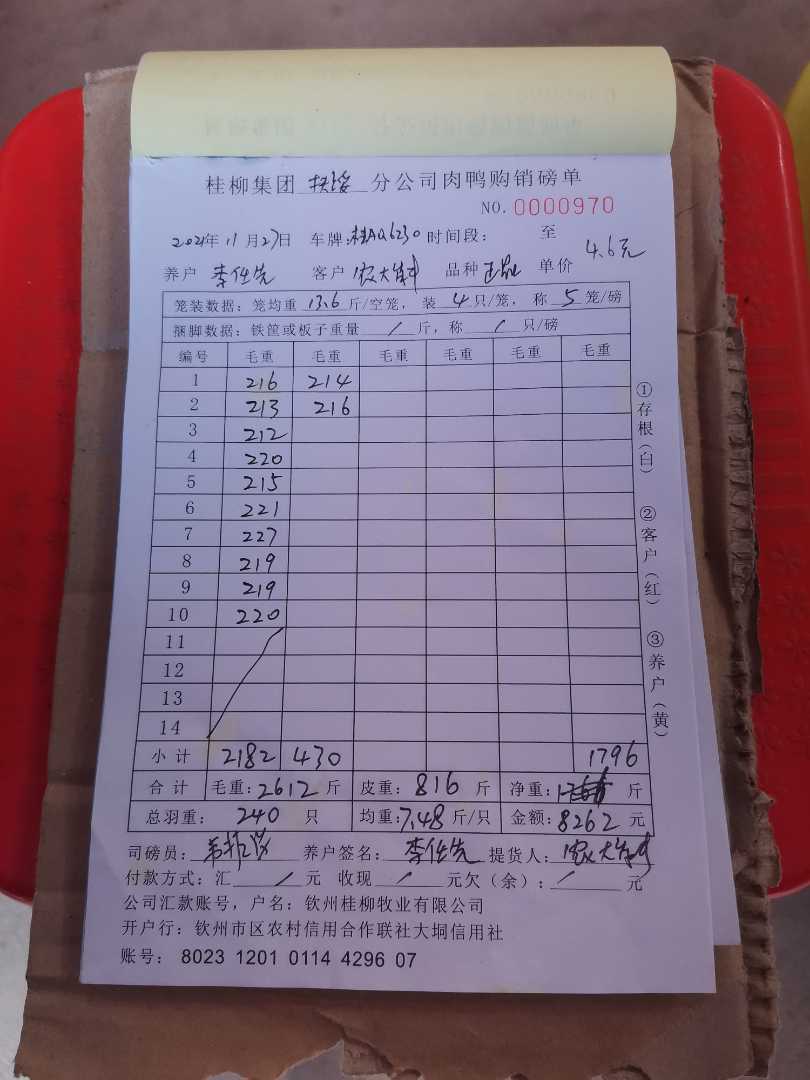 桂柳集团 扶绥 分公司肉鸭购销磅单
NO. 0000970
2021年 11月27日 车牌:桂AQ6230 时间段: 至
养户 李仕先 客户 农大 品种 正品 单价 4.6元
笼装数据: 笼均重 13.6 斤/空笼, 装 4 只/笼, 称 5 笼/磅
捆脚数据: 铁筐或板子重量 / 斤, 称 / 只/磅
编号 毛重 毛重 毛重 毛重 毛重 毛重
1 216 214
2 213 216
3 212
4 220
5 215
6 221
7 227
8 219
9 219
10 220
11
12
13
14
小计 2182 430 1796
合计 毛重:2612斤 皮重: 816 斤 净重: 斤
总羽重: 240 只 均重:7.48斤/只 金额:8262元
司磅员: 养户签名: 李仕先 提货人: 农大
付款方式: 汇 / 元 收现 / 元欠(余): / 元
公司汇款账号, 户名: 钦州桂柳牧业有限公司
开户行: 钦州市区农村信用合作联社大垌信用社
账号: 8023 1201 0114 4296 07
①存根(白)
②客户(红)
③养户(黄)